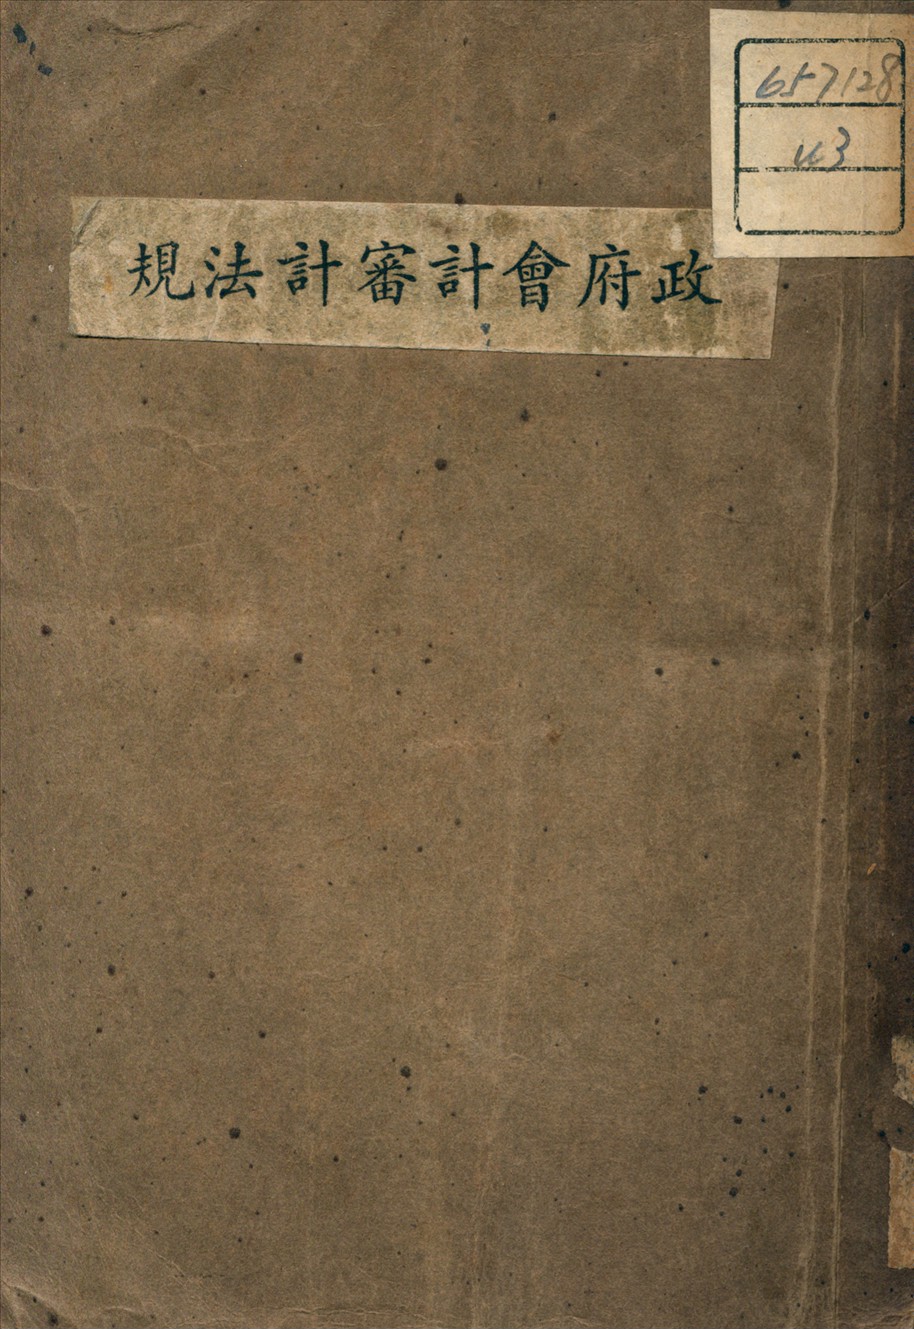 政府會計審計法規
657128
43